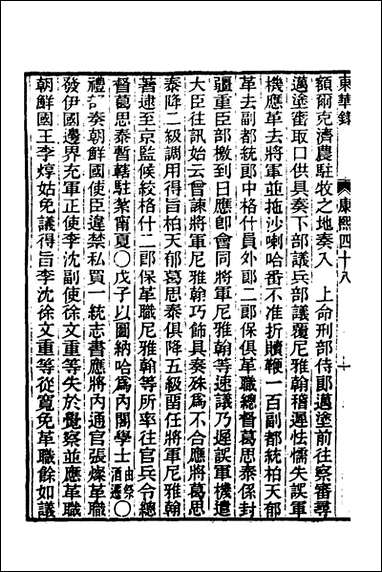 東華錄 康熙四十八
額爾克濟農駐牧之地奏入 上命刑部侍郎邁塗前往察審尋
邁塗審取口供具奏下部議兵部議覆尼雅翰稽遲怯懦失誤軍
機應革去將軍並拖沙喇哈番不准折贖鞭一百副都統柏天郁
革去副都統郎中格什員外郎二郎保俱革職總督葛思泰係封
疆重臣部檄到日應卽會同將軍尼雅翰等速議乃遲誤軍機遣
大臣往訊始云曾諫將軍尼雅翰巧飾具奏殊爲不合應將葛思
泰降二級調用得旨柏天郁葛思泰俱降五級留任將軍尼雅翰
著逮至京監候絞格什二郎保革職尼雅翰等所率往官兵令總
督葛思泰暫轄駐紮甯夏○戊子以圖納哈爲內閣學士由祭酒遷○
禮部奏朝鮮國使臣違禁私買一統志書應將內通官張燦革職
發伊國邊界充軍正使李沈副使徐文重等失於覺察並應革職
朝鮮國王李焞姑免議得旨李沈徐文重等從寬免革職餘如議